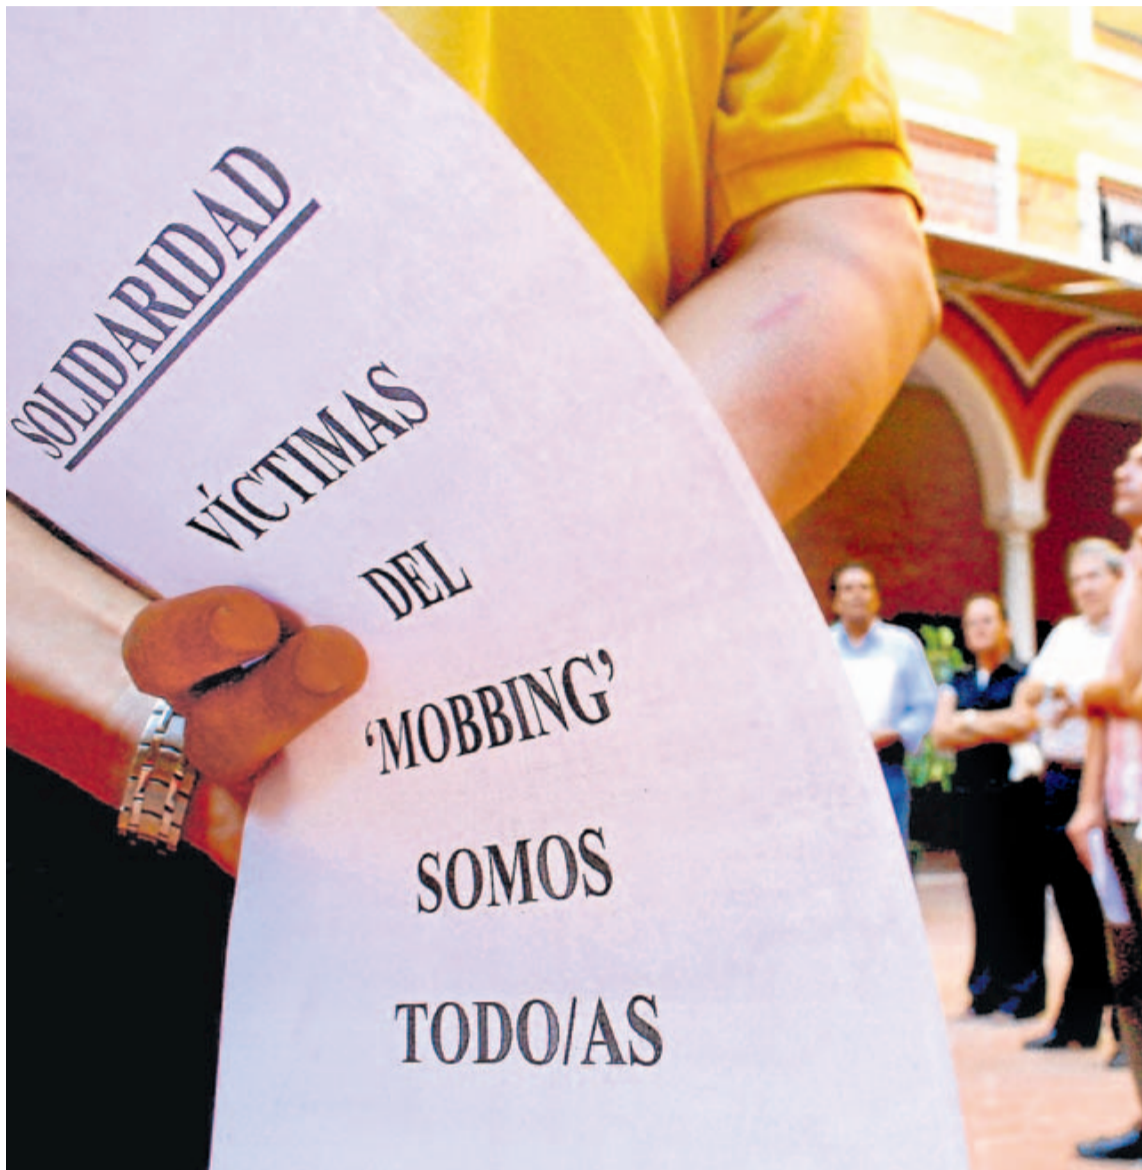 SOLIDARIDAD
VÍCTIMAS
DEL
‘MOBBING’
SOMOS
TODO/AS